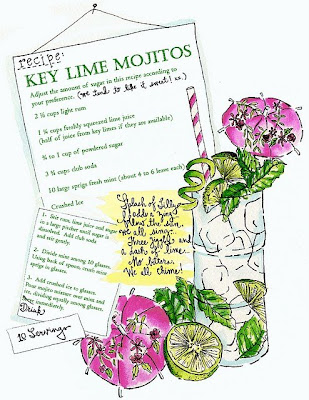 recipe:
KEY LIME MOJITOS
Adjust the amount of sugar in this recipe according to
your preference. (we tend to like it sweet! xx.)
2 ¼ cups light rum
1 ¼ cups freshly squeezed lime juice
(half of juice from key limes if they are available)
¾ to 1 cup of powdered sugar
3 ¾ cups club soda
10 large sprigs fresh mint (about 4 to 6 leaves each)
Crushed ice
Splash of Lilly
adds a zing
follow the sun
we all sing.
Three jiggles and
a dash of lime
No bitters,
We all chime!
1. Stir rum, lime juice and sugar
in a large pitcher until sugar is
dissolved. Add club soda
and stir gently.
2. Divide mint among 10 glasses.
Using back of spoon, crush mint
sprigs in glasses.
3. Add crushed ice to glasses.
Pour mojito mixture over mint and
ice, dividing equally among glasses.
immediately.
Drink
10 Servings